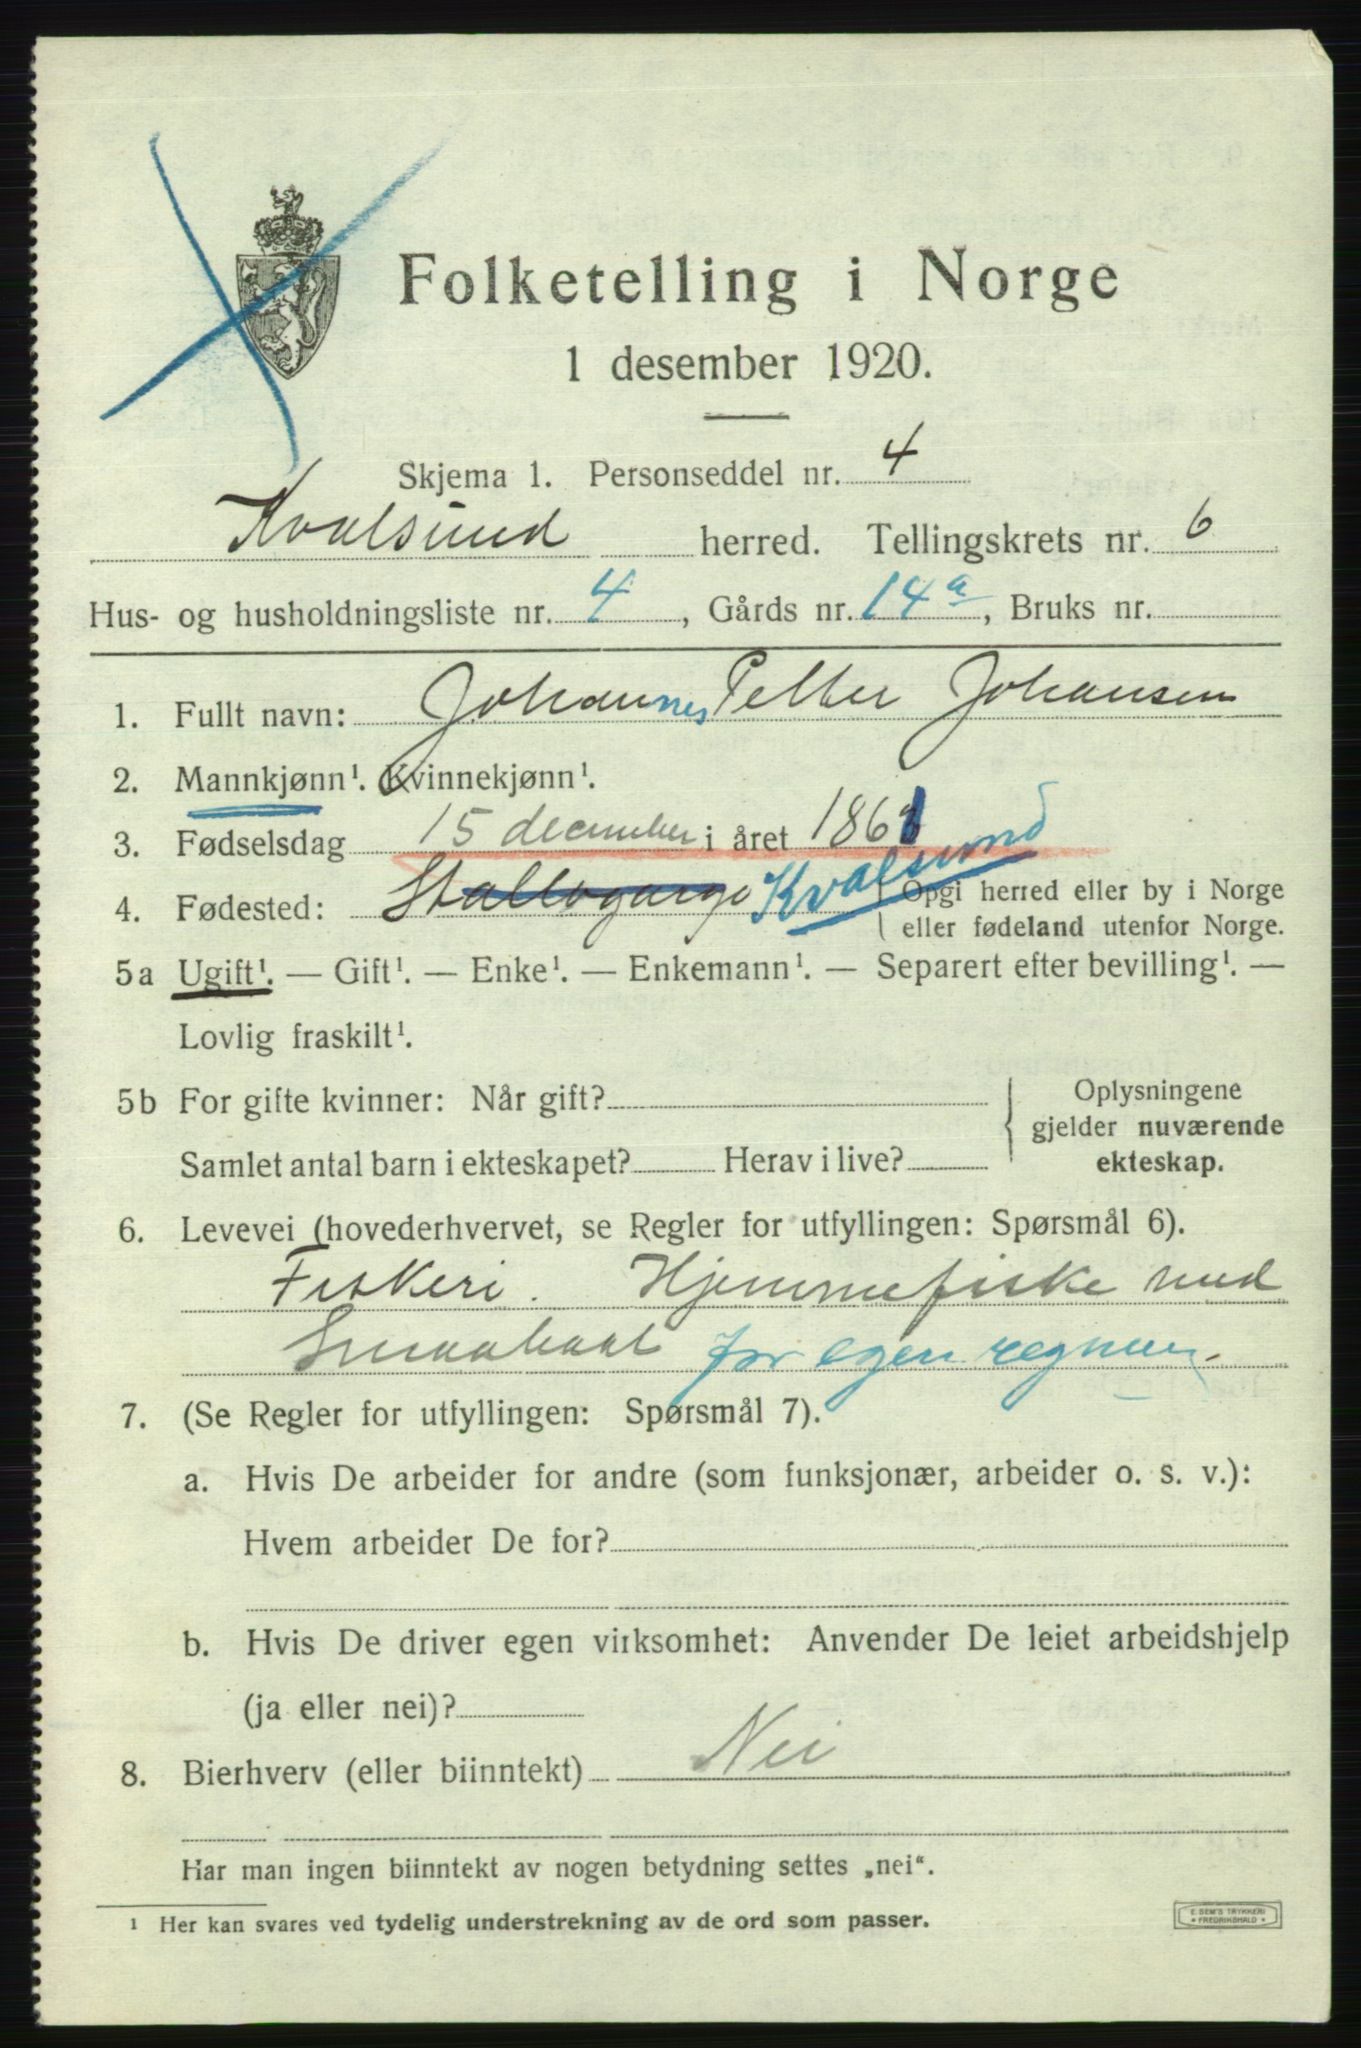 Folketelling i Norge
1 desember 1920.
Skjema 1. Personseddel nr. 4
Kvalsund herred. Tellingskrets nr. 6
Hus- og husholdningsliste nr. 4, Gårds nr. 14a, Bruks nr.
1. Fullt navn: Johannes Petter Johansen
2. Mannkjønn¹. Kvinnekjønn¹.
3. Fødselsdag 15 december i året 1861
4. Fødested: Stallogargo Kvalsund { Opgi herred eller by i Norge
eller fødeland utenfor Norge.
5a Ugift¹. — Gift¹. — Enke¹. — Enkemann¹. — Separert efter bevilling¹. —
Lovlig fraskilt¹.
5b For gifte kvinner: Når gift? { Oplysningene
gjelder nuværende
Samlet antal barn i ekteskapet? Herav i live? ekteskap.
6. Levevei (hovederhvervet, se Regler for utfyllingen: Spørsmål 6).
Fiskeri. Hjemmefiske med
Smaabaat for egen regning.
7. (Se Regler for utfyllingen: Spørsmål 7).
a. Hvis De arbeider for andre (som funksjonær, arbeider o. s. v.):
Hvem arbeider De for?
b. Hvis De driver egen virksomhet: Anvender De leiet arbeidshjelp
(ja eller nei)?
8. Bierhverv (eller biinntekt) Nei
Har man ingen biinntekt av nogen betydning settes „nei“.
¹ Her kan svares ved tydelig understrekning av de ord som passer.
E. SEM'S TRYKKERI
* FREDRIKSHALD *